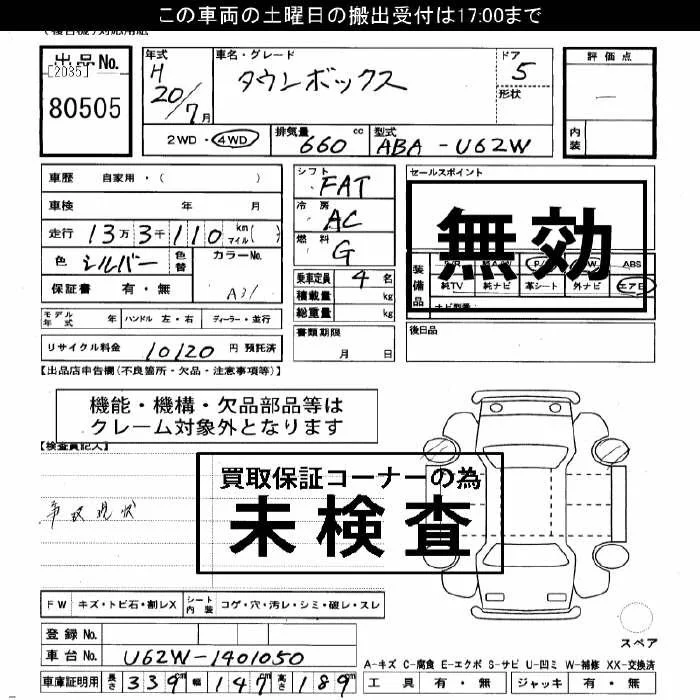 この車両の土曜日の搬出受付は17:00まで
出品No.
[2035]
80505
年式 H 20/7月
車名・グレード タウンボックス
ドア 5
形状
評価点
内装
2WD・4WD
排気量 660 cc
型式 ABA-U62W
車歴 自家用・( )
車検 年 月
走行 13万3千110 km マイル( )
色 シルバー 色替 カラーNo. A31
保証書 有・無
シフト FAT
冷房 AC
燃料 G
乗車定員 4名
積載量 kg
総重量 kg
書類期限 月 日
セールスポイント
無効
装備品
ABS
純TV 純ナビ 革シート 外ナビ エアB
ナビ型番:
後日品
モデル年式 年 ハンドル 左・右 ディーラー・並行
リサイクル料金 10120 円 預託済
【出品店申告欄(不良箇所・欠品・注意事項等)】
機能・機構・欠品部品等は
クレーム対象外となります
【検査員記入】
買取保証コーナーの為
未検査
事故現状
FW キズ・トビ石・割レX シート内装 コゲ・穴・汚レ・シミ・破レ・スレ
スペア
登録No.
車台No. U62W-1401050
車庫証明用 長さ 339m 幅 147m 高さ 189m
A-キズ C-腐食 E-エクボ S-サビ U-凹ミ W-補修 XX-交換済
工具 有・無 ジャッキ 有・無